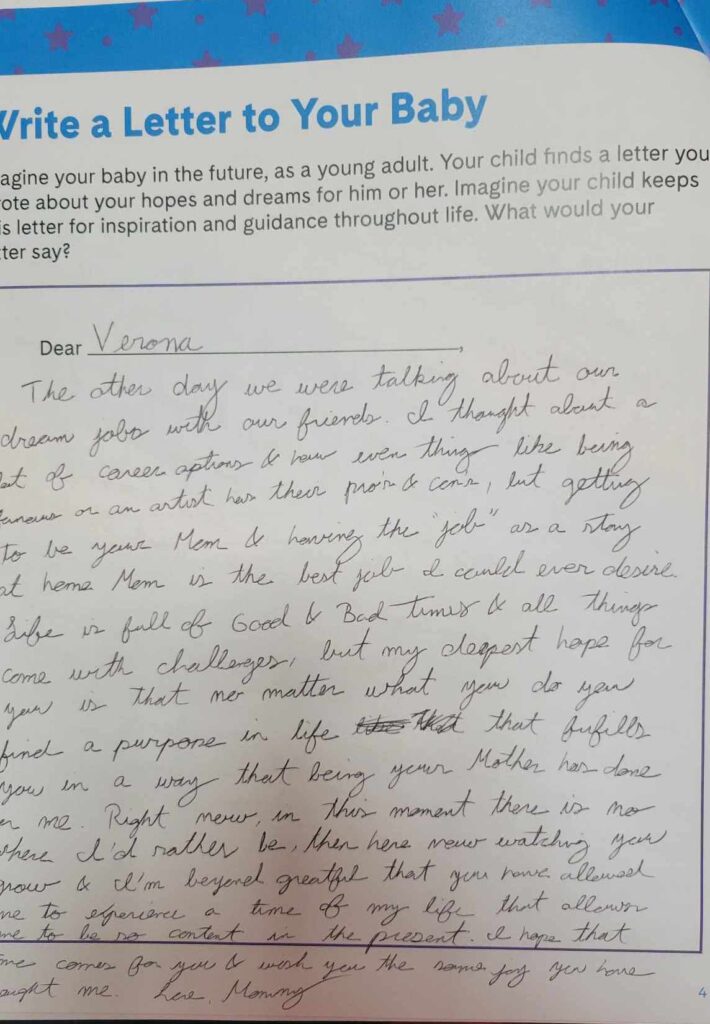 Write a Letter to Your Baby
agine your baby in the future, as a young adult. Your child finds a letter you
rote about your hopes and dreams for him or her. Imagine your child keeps
is letter for inspiration and guidance throughout life. What would your
tter say?
Dear Verona,
The other day we were talking about our
dream jobs with our friends. I thought about a
lot of career options & how even things like being
famous or an artist has their pro's & con's, but getting
to be your Mom & having the "job" as a stay
at home Mom is the best job I could ever desire.
Life is full of Good & Bad times & all things
come with challenges, but my deepest hope for
you is that no matter what you do you
find a purpose in life that fufills
you in a way that being your Mother has done
for me. Right now, in this moment there is no
where I'd rather be, then here now watching you
grow & I'm beyond greatful that you have allowed
me to experience a time of my life that allows
me to be so content in the present. I hope that
time comes for you & wish you the same joy you have
taught me. Love, Mommy
4